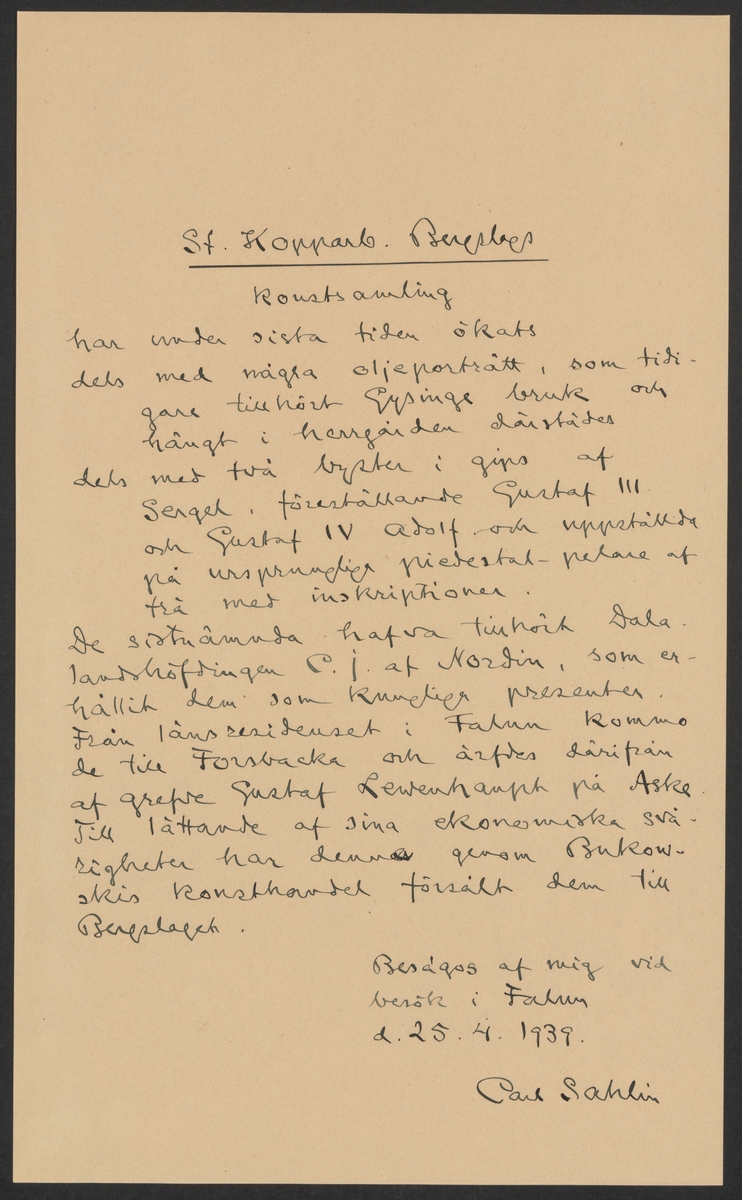 St. Kopparb. Bergslags
konstsamling
har under sista tiden ökats
dels med några oljeporträtt, som tidi-
gare tillhört Gysinge bruk och
hängt i herrgården därstädes
dels med två byster i gips af
Sergel, föreställande Gustaf III
och Gustaf IV Adolf och uppställda
på ursprungliga piedestal-pelare af
trä med inskriptioner.
De sistnämnda hafva tillhört Dala-
landshöfdingen C. J. af Nordin, som er-
hållit dem som kungliga presenter.
Från länsresidenset i Falun kommo
de till Forsbacka och ärfdes därifrån
af grefve Gustaf Lewenhaupt på Aske.
Till lättande af sina ekonomiska svå-
righeter har denne genom Bukow-
skis konsthandel försålt dem till
Bergslaget.
Besågos af mig vid
besök i Falun
d. 25. 4. 1939.
Carl Sahlin